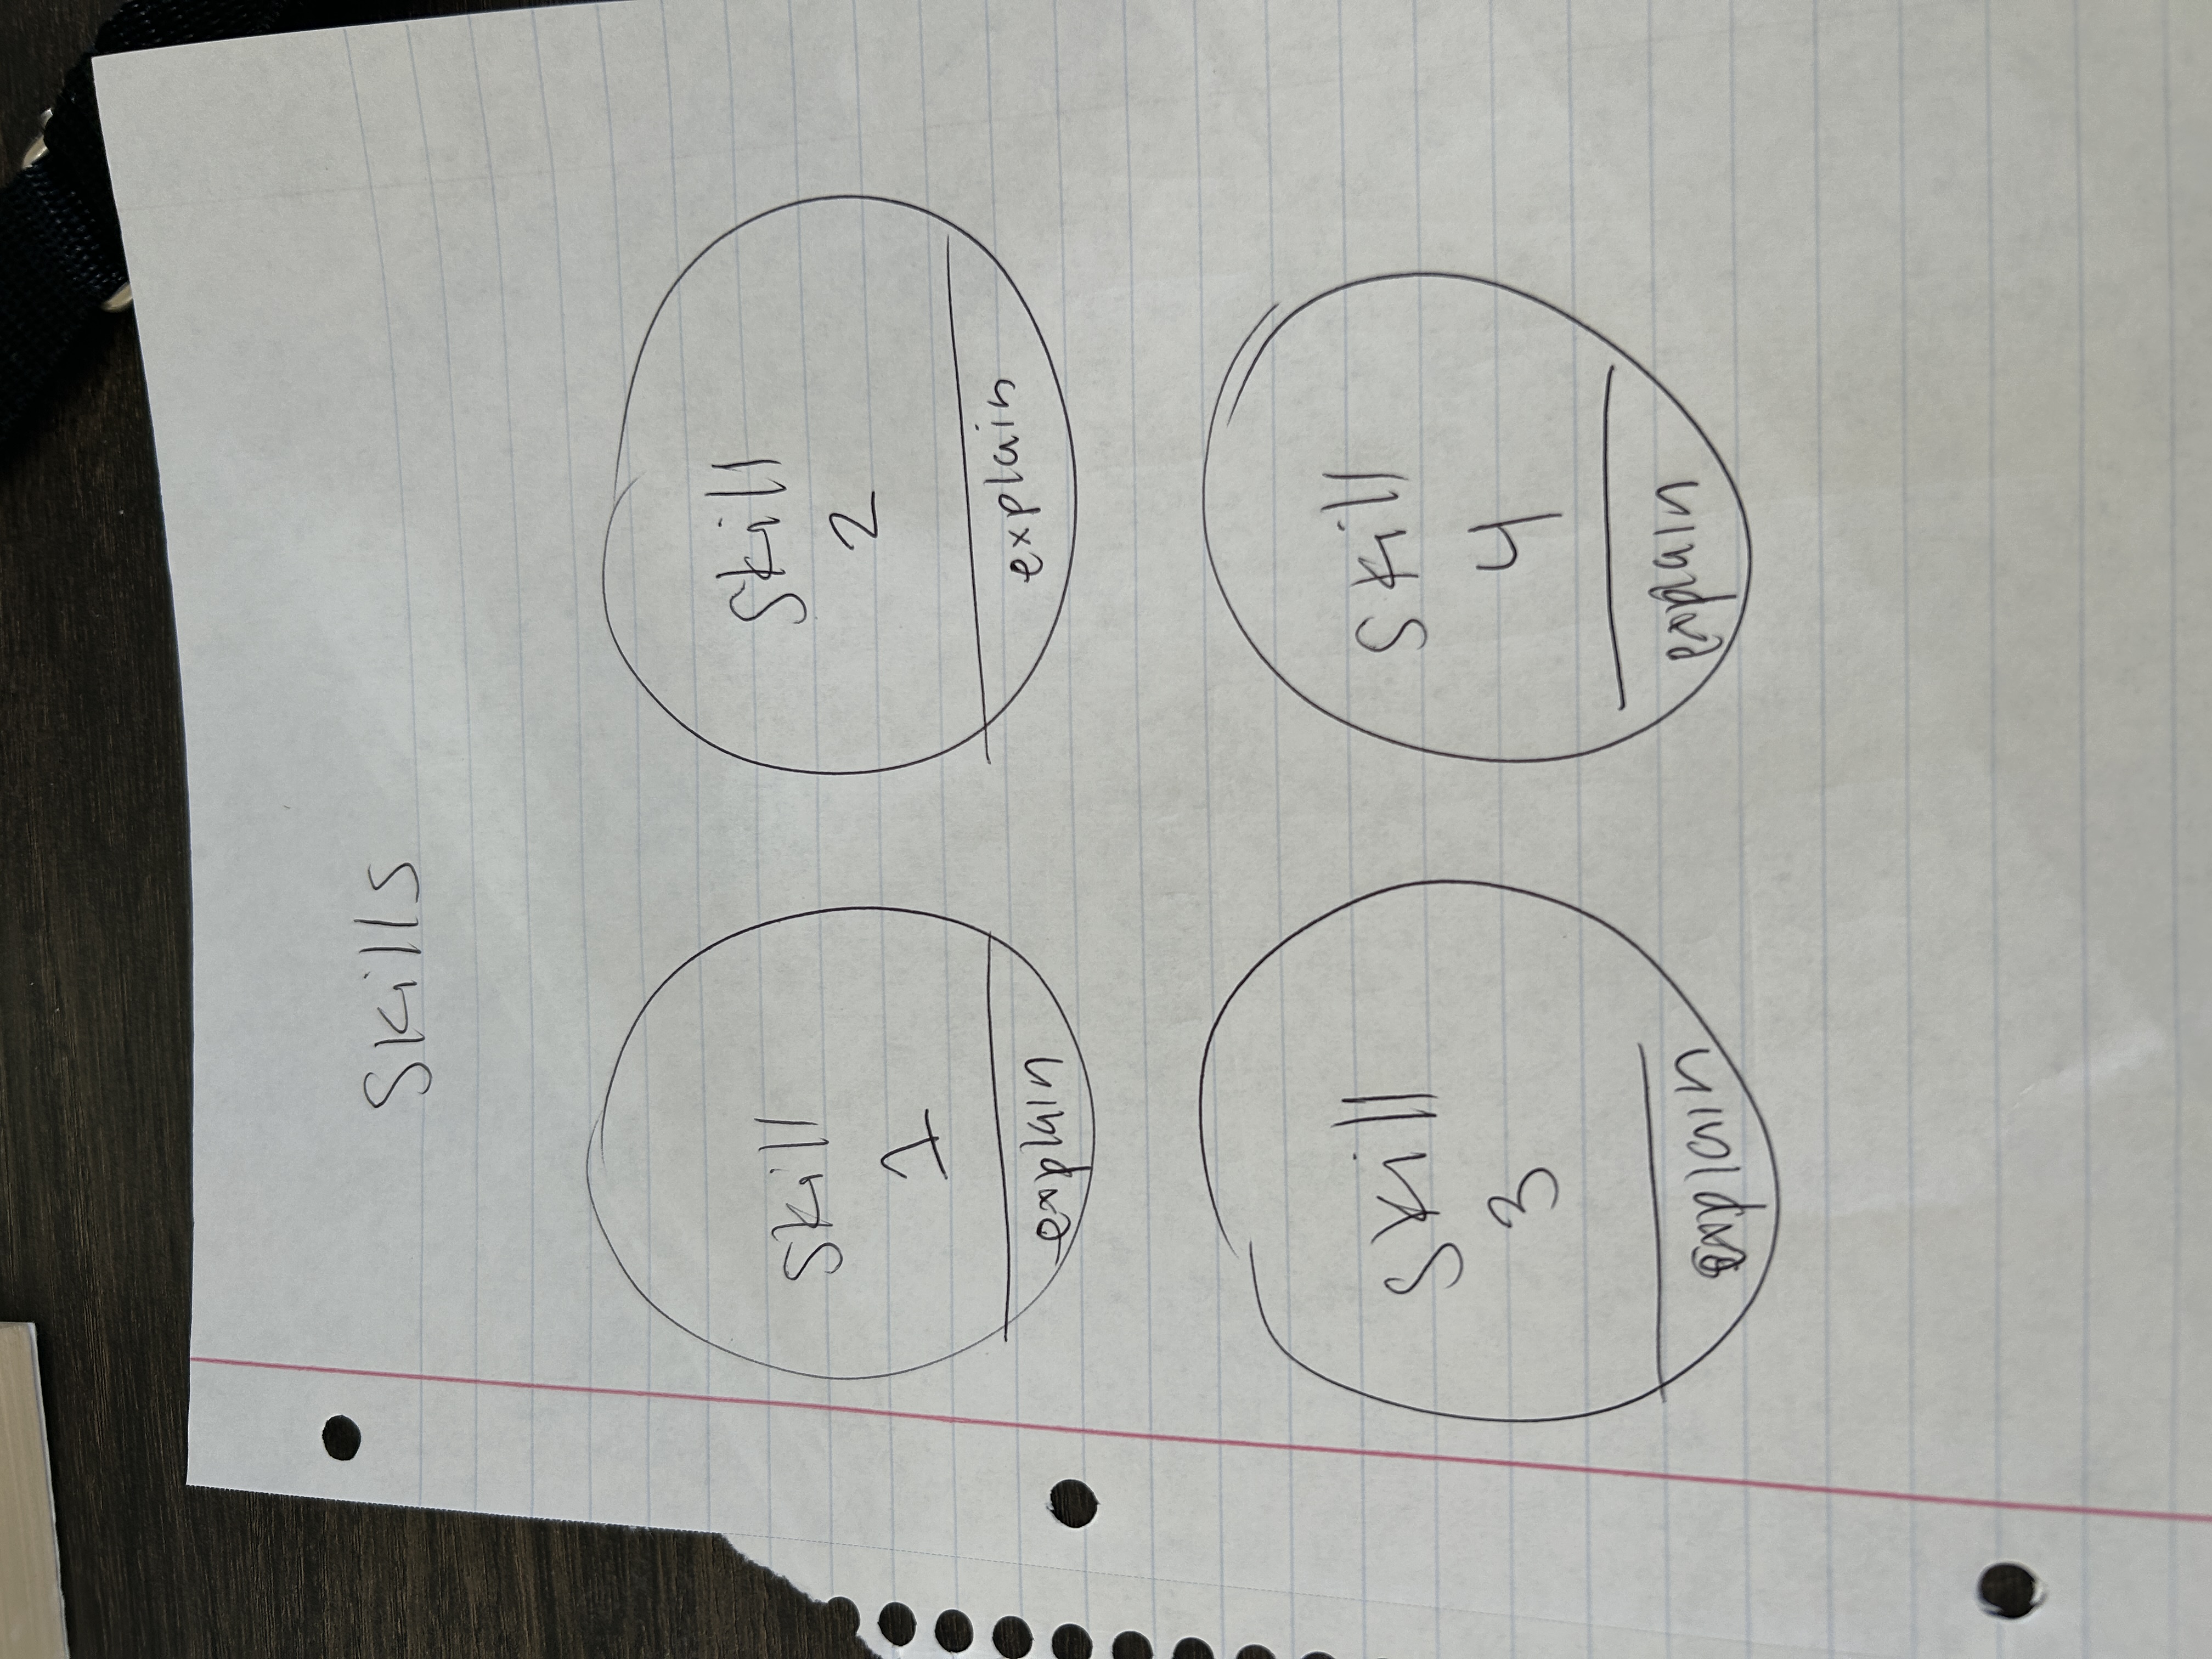 Skills
Skill
1
explain
Skill
2
explain
Skill
3
explain
Skill
4
explain